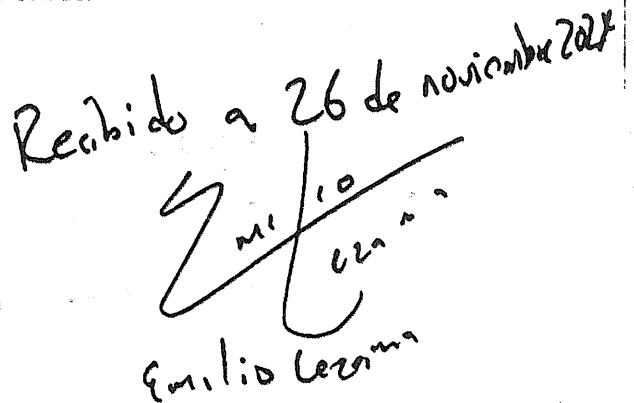 Recibido a 26 de noviembre 2024
Emilio
Lezama
Emilio Lezama